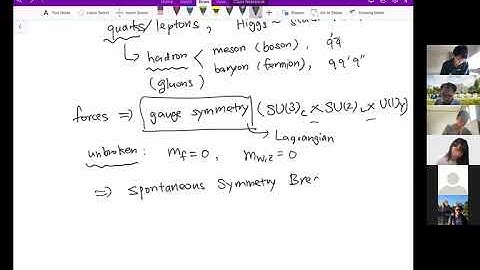 quarks/leptons, Higgs ~
hadron < meson (boson), q'q̄
(gluons) baryon (fermion), qq'q"
forces ⇒ gauge symmetry (SU(3)c × SU(2)L × U(1)Y)
Lagrangian
unbroken : mf=0 , mW,Z = 0
⇒ Spontaneous Symmetry Bre